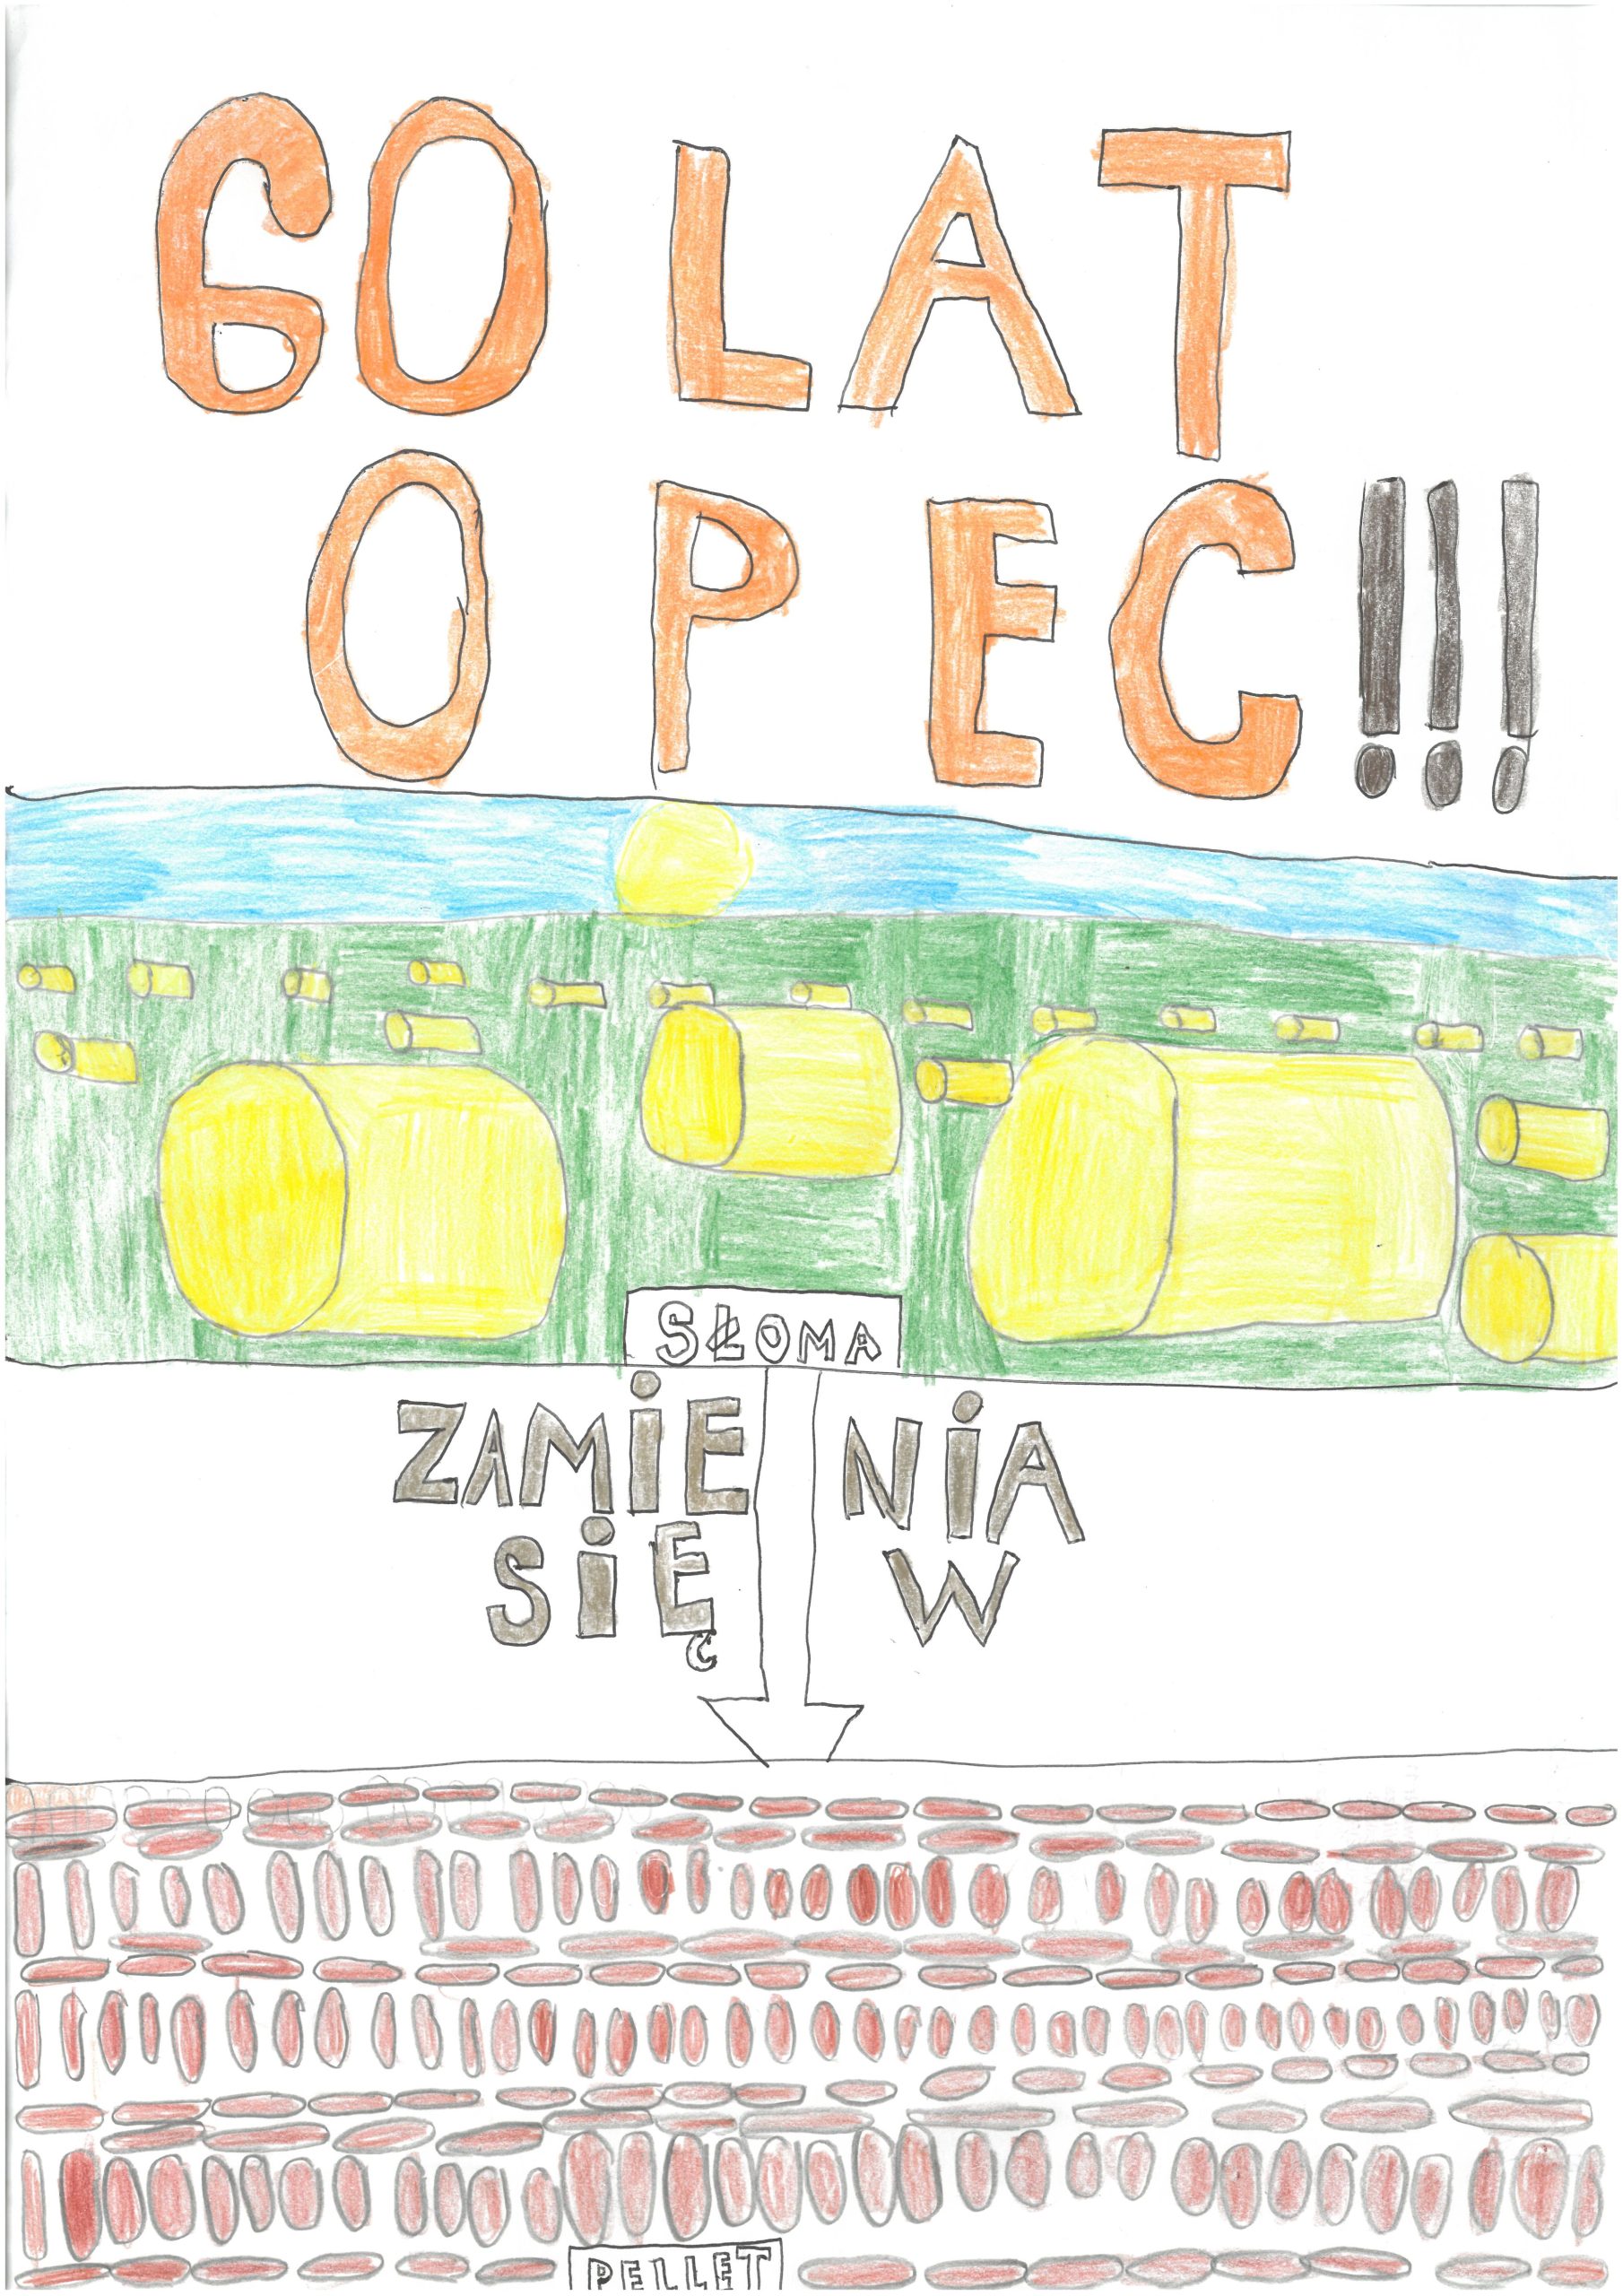 60 LAT
OPEC!!!
SŁOMA
ZAMIENIA
SIĘ W
PELLET